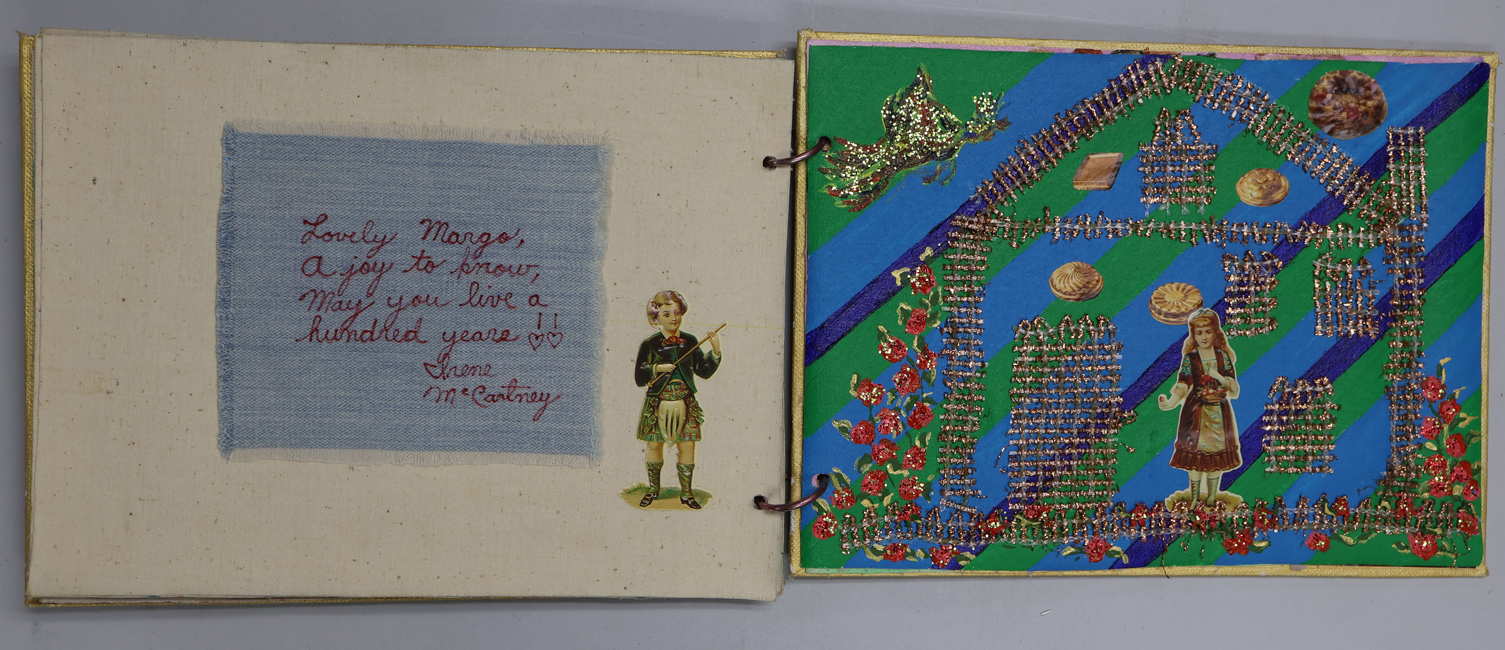 Lovely Margo,
A joy to know,
May you live a
hundred years !!
Irene
McCartney